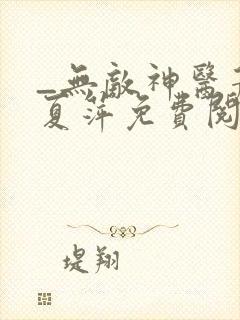 _無敵神醫
夏萍免費閱
堤翔